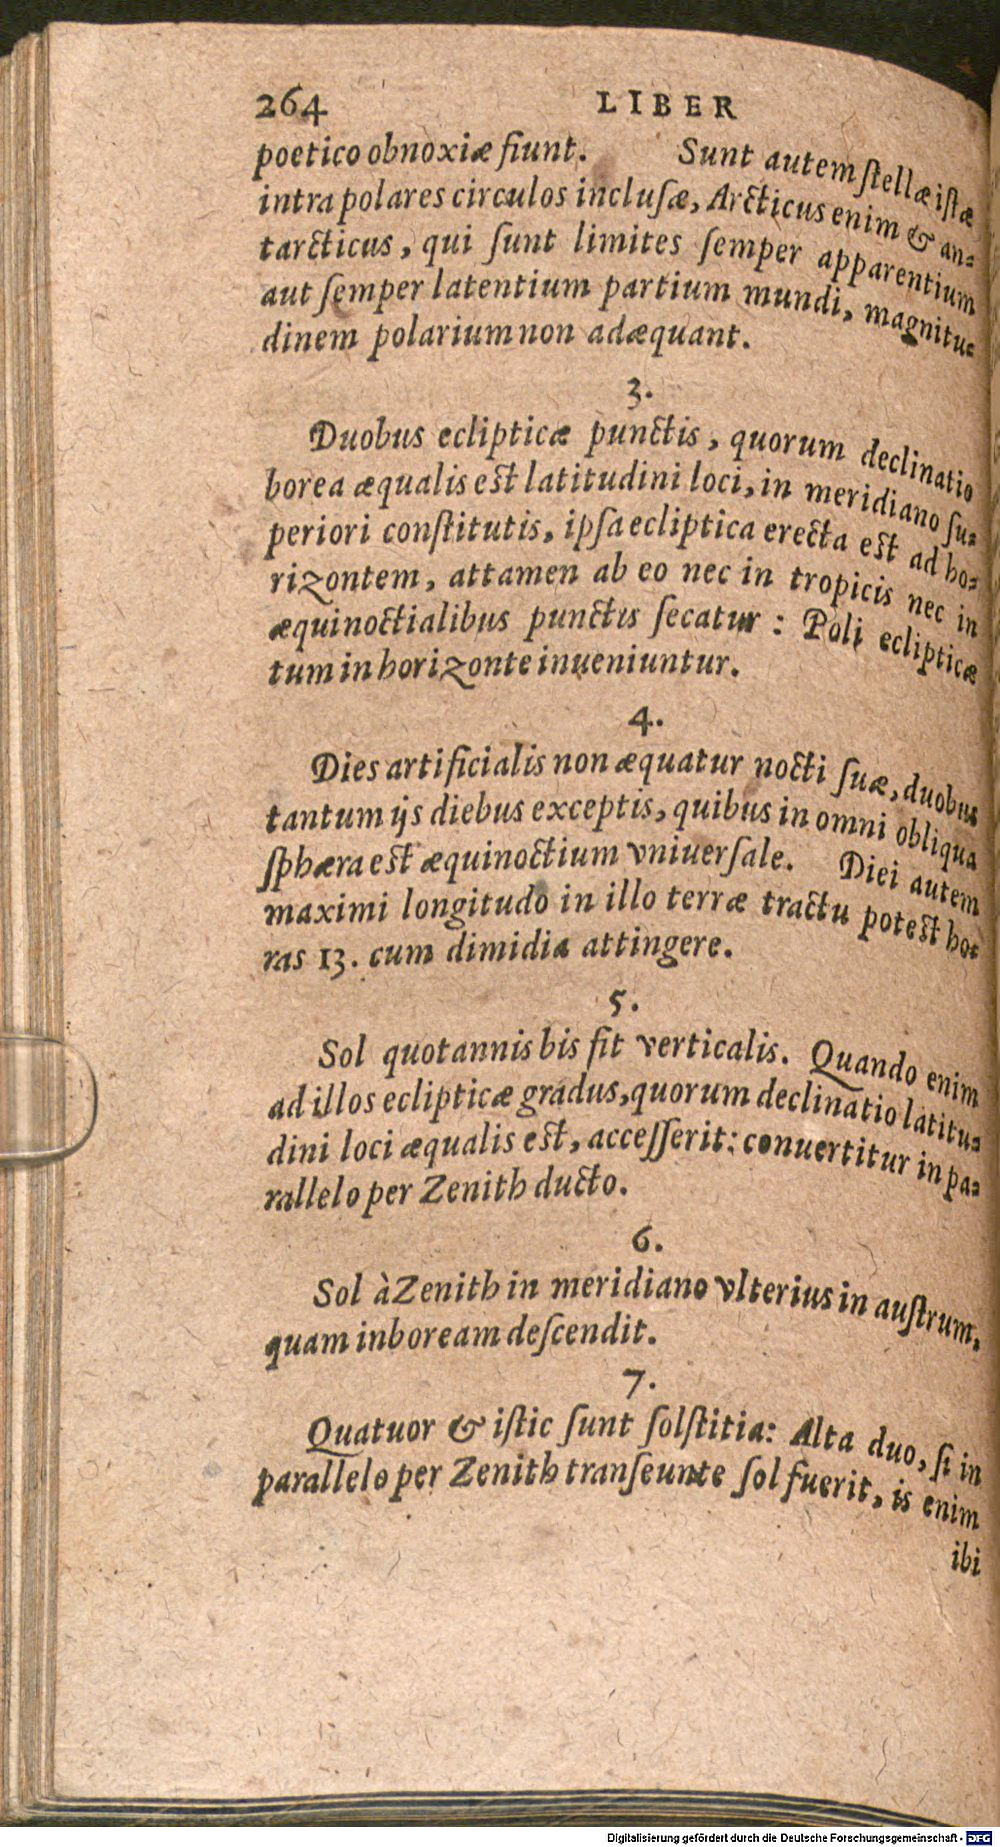 264 LIBER
poetico obnoxiæ fiunt. Sunt autem ſtellæ iſtæ
intra polares circulos incluſæ, Arcticus enim & an-
tarcticus, qui ſunt limites ſemper apparentium
aut ſemper latentium partium mundi, magnitu-
dinem polarium non adæquant.
3.
Duobus eclipticæ punctis, quorum declinatio
borea æqualis est latitudini loci, in meridiano ſu-
periori conſtitutis, ipſa ecliptica erecta est ad ho-
rizontem, attamen ab eo nec in tropicis nec in
æquinoctialibus punctis ſecatur: Poli eclipticæ
tum in horizonte inueniuntur.
4.
Dies artificialis non æquatur nocti ſuæ, duobus
tantum ijs diebus exceptis, quibus in omni obliqua
ſphæra est æquinoctium vniuerſale. Diei autem
maximi longitudo in illo terræ tractu potest ho-
ras 13. cum dimidia attingere.
5.
Sol quotannis bis fit verticalis. Quando enim
ad illos eclipticæ gradus, quorum declinatio latitu-
dini loci æqualis est, acceſſerit: conuertitur in pa-
rallelo per Zenith ducto.
6.
Sol à Zenith in meridiano vlterius in auſtrum,
quam in boream deſcendit.
7.
Quatuor & iſtic ſunt ſolſtitia: Alta duo, ſi in
parallelo per Zenith tranſeunte ſol fuerit, is enim
ibi
Digitalisierung gefördert durch die Deutsche Forschungsgemeinschaft - DFG